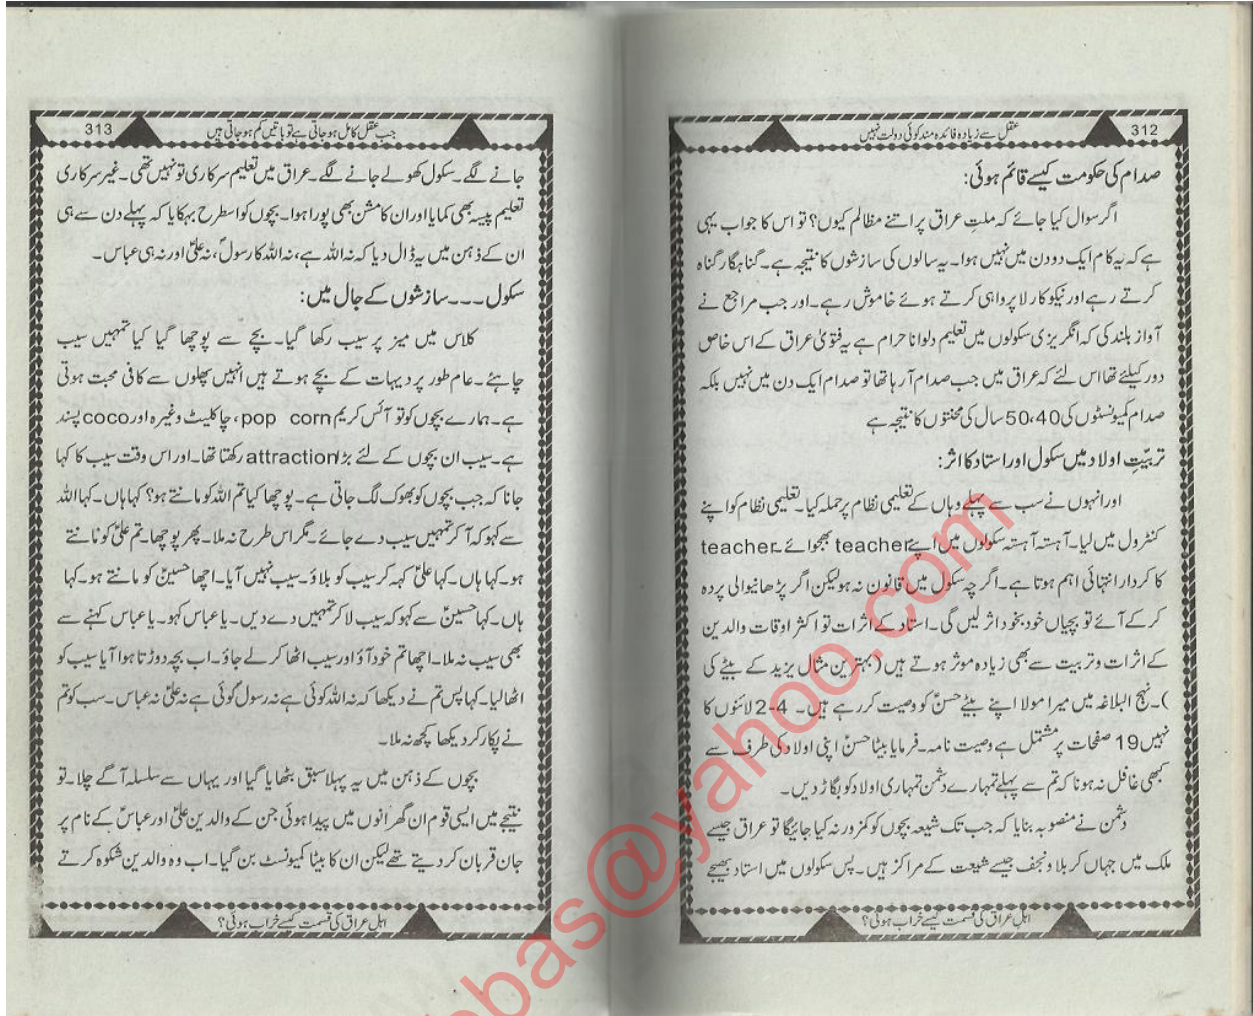 312
عقل سے زیادہ فائدہ مند کوئی دولت نہیں
صدام کی حکومت کیسے قائم ہوئی:
اگر سوال کیا جائے کہ ملتِ عراق پر اتنے مظالم کیوں؟ تو اس کا جواب یہی
ہے کہ یہ کام ایک دو دن میں نہیں ہوا۔ یہ سالوں کی سازشوں کا نتیجہ ہے۔ گناہگار گناہ
کرتے رہے اور نیکو کار لا پرواہی کرتے ہوئے خاموش رہے۔ اور جب مراجع نے
آواز بلند کی کہ انگریزی سکولوں میں تعلیم دلوانا حرام ہے یہ فتویٰ عراق کے اس خاص
دور کیلئے تھا اس لئے کہ عراق میں جب صدام آ رہا تھا تو صدام ایک دن میں نہیں بلکہ
صدام کمیونسٹوں کی 40،50 سال کی محنتوں کا نتیجہ ہے
تربیّتِ اولاد میں سکول اور استاد کا اثر:
اور انہوں نے سب سے پہلے وہاں کے تعلیمی نظام پر حملہ کیا۔ تعلیمی نظام کو اپنے
کنٹرول میں لیا۔ آہستہ آہستہ سکولوں میں اپنے teacher بھجوائے۔ teacher
کا کردار انتہائی اہم ہوتا ہے۔ اگر چہ سکول میں قانون نہ ہو لیکن اگر پڑھانیوالی پردہ
کر کے آئے تو بچیاں خود بخود اثر لیں گی۔ استاد کے اثرات تو اکثر اوقات والدین
کے اثرات و تربیت سے بھی زیادہ موثر ہوتے ہیں (بہترین مثال یزید کے بیٹے کی
)۔ نہج البلاغہ میں میرا مولا اپنے بیٹے حسنؑ کو وصیت کر رہے ہیں۔ 2-4 لائنوں کا
نہیں 19 صفحات پر مشتمل ہے وصیت نامہ۔ فرمایا بیٹا حسنؑ اپنی اولاد کی طرف سے
کبھی غافل نہ ہونا کہ تم سے پہلے تمہارے دشمن تمہاری اولاد کو بگاڑ دیں۔
دشمن نے منصوبہ بنایا کہ جب تک شیعہ بچوں کو کمزور نہ کیا جائیگا تو عراق جیسے
ملک میں جہاں کربلا و نجف جیسے شیعت کے مراکز ہیں۔ پس سکولوں میں استاد بھیجے
اہل عراق کی قسمت کیسے خراب ہوئی؟
313
جب عقل کامل ہو جاتی ہے تو باتیں کم ہو جاتی ہیں
جانے لگے۔ سکول کھولے جانے لگے۔ عراق میں تعلیم سرکاری تو نہیں تھی۔ غیر سرکاری
تعلیم پیسہ بھی کمایا اور ان کا مشن بھی پورا ہوا۔ بچوں کو اسطرح بہکایا کہ پہلے دن سے ہی
ان کے ذہن میں یہ ڈال دیا کہ نہ اللہ ہے، نہ اللہ کا رسولؐ، نہ علیؑ اور نہ ہی عباس۔
سکول۔۔۔سازشوں کے جال میں:
کلاس میں میز پر سیب رکھا گیا۔ بچے سے پوچھا گیا کیا تمہیں سیب
چاہئے۔ عام طور پر دیہات کے بچے ہوتے ہیں انہیں پھلوں سے کافی محبت ہوتی
ہے۔ ہمارے بچوں کو تو آئس کریم pop corn، چاکلیٹ وغیرہ اور coco پسند
ہے۔ سیب ان بچوں کے لئے بڑا attraction رکھتا تھا۔ اور اس وقت سیب کا کہا
جانا کہ جب بچوں کو بھوک لگ جاتی ہے۔ پوچھا کیا تم اللہ کو مانتے ہو؟ کہا ہاں۔ کہا اللہ
سے کہو کہ آ کر تمہیں سیب دے جائے۔ مگر اس طرح نہ ملا۔ پھر پوچھا۔ تم علیؑ کو مانتے
ہو۔ کہا ہاں۔ کہا علیؑ کہہ کر سیب کو بلاؤ۔ سیب نہیں آیا۔ اچھا حسینؑ کو مانتے ہو۔ کہا
ہاں۔ کہا حسینؑ سے کہو کہ سیب لا کر تمہیں دے دیں۔ یا عباس کہو۔ یا عباس کہنے سے
بھی سیب نہ ملا۔ اچھا تم خود آؤ اور سیب اٹھا کر لے جاؤ۔ اب بچہ دوڑتا ہوا آیا سیب کو
اٹھا لیا۔ کہا پس تم نے دیکھا کہ نہ اللہ کوئی ہے نہ رسول کوئی ہے نہ علیؑ نہ عباس۔ سب کو تم
نے پکار کر دیکھا کچھ نہ ملا۔
بچوں کے ذہن میں یہ پہلا سبق بٹھایا گیا اور یہاں سے سلسلہ آگے چلا۔ تو
نتیجے میں ایسی قوم ان گھرانوں میں پیدا ہوئی جن کے والدین علیؑ اور عباسؑ کے نام پر
جان قربان کر دیتے تھے لیکن ان کا بیٹا کمیونسٹ بن گیا۔ اب وہ والدین شکوہ کرتے
اہل عراق کی قسمت کیسے خراب ہوئی؟
bas@yahoo.com